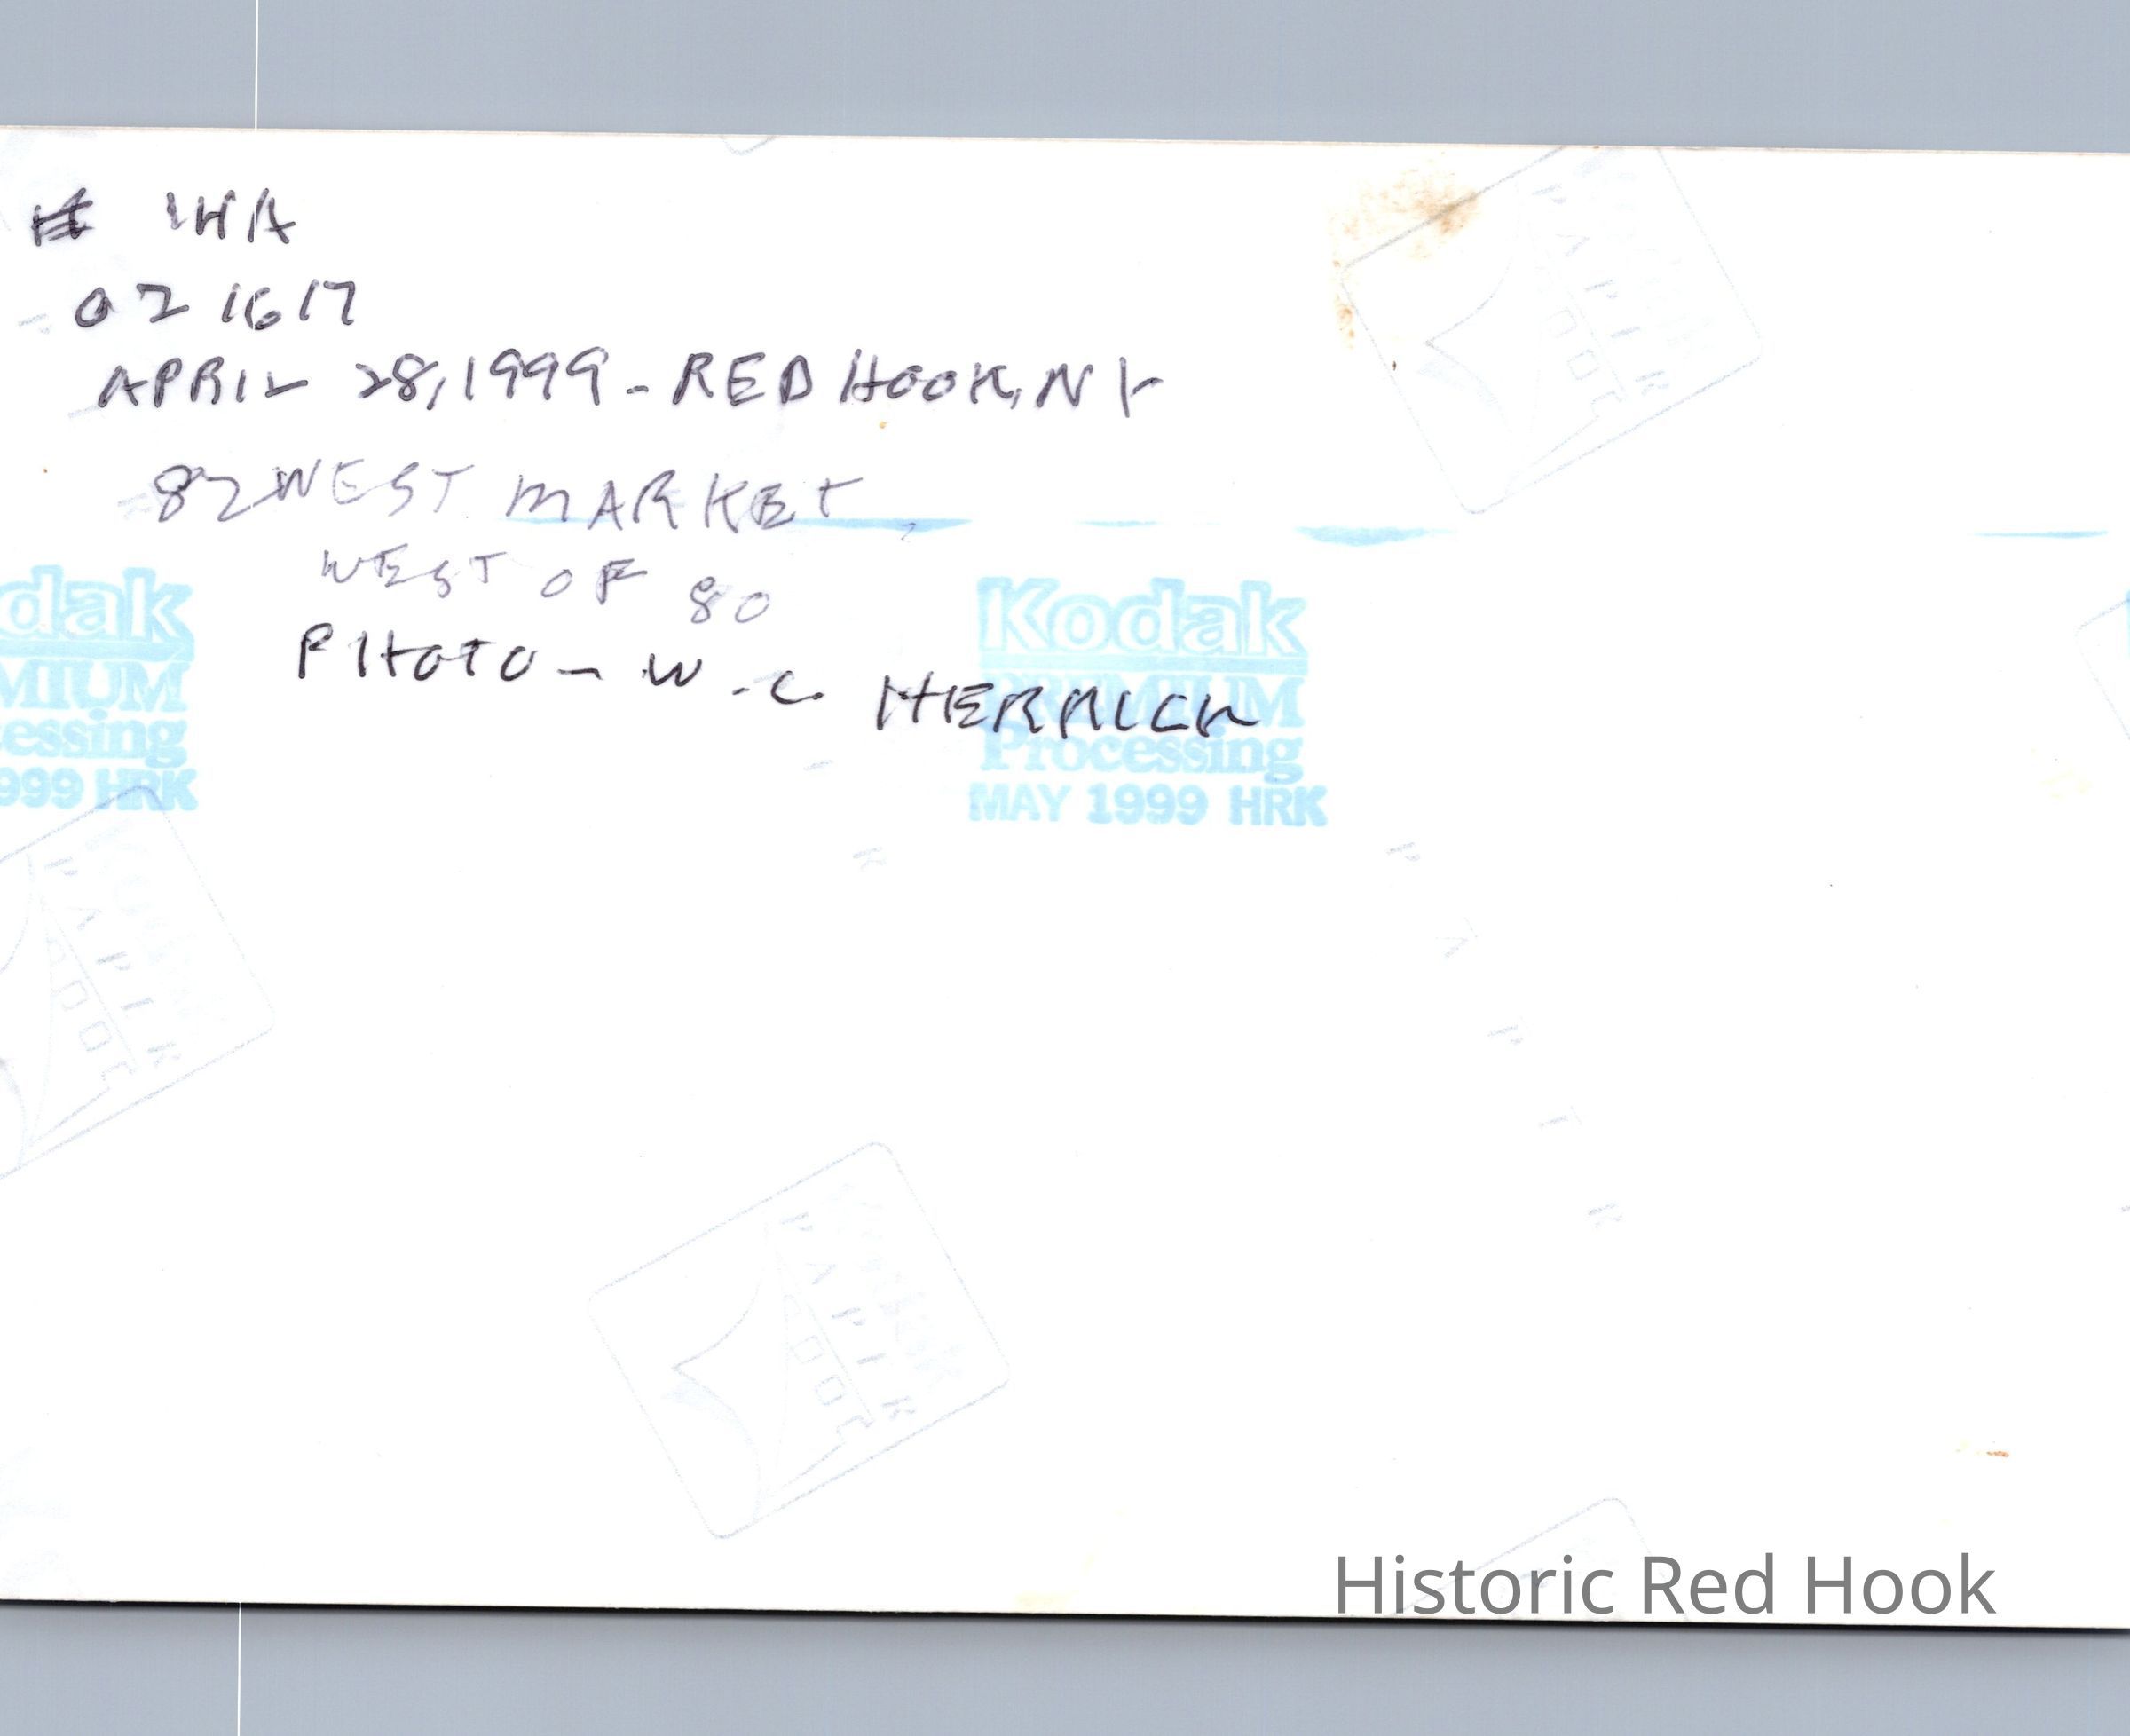 # 14A
021617
APRIL 28, 1999 - RED HOOK, NY
82 WEST MARKET
WEST OF 80
PHOTO - W.C. HERRICK
dak
MIUM
essing
999 HRK
Kodak
PREMIUM
Processing
MAY 1999 HRK
Historic Red Hook